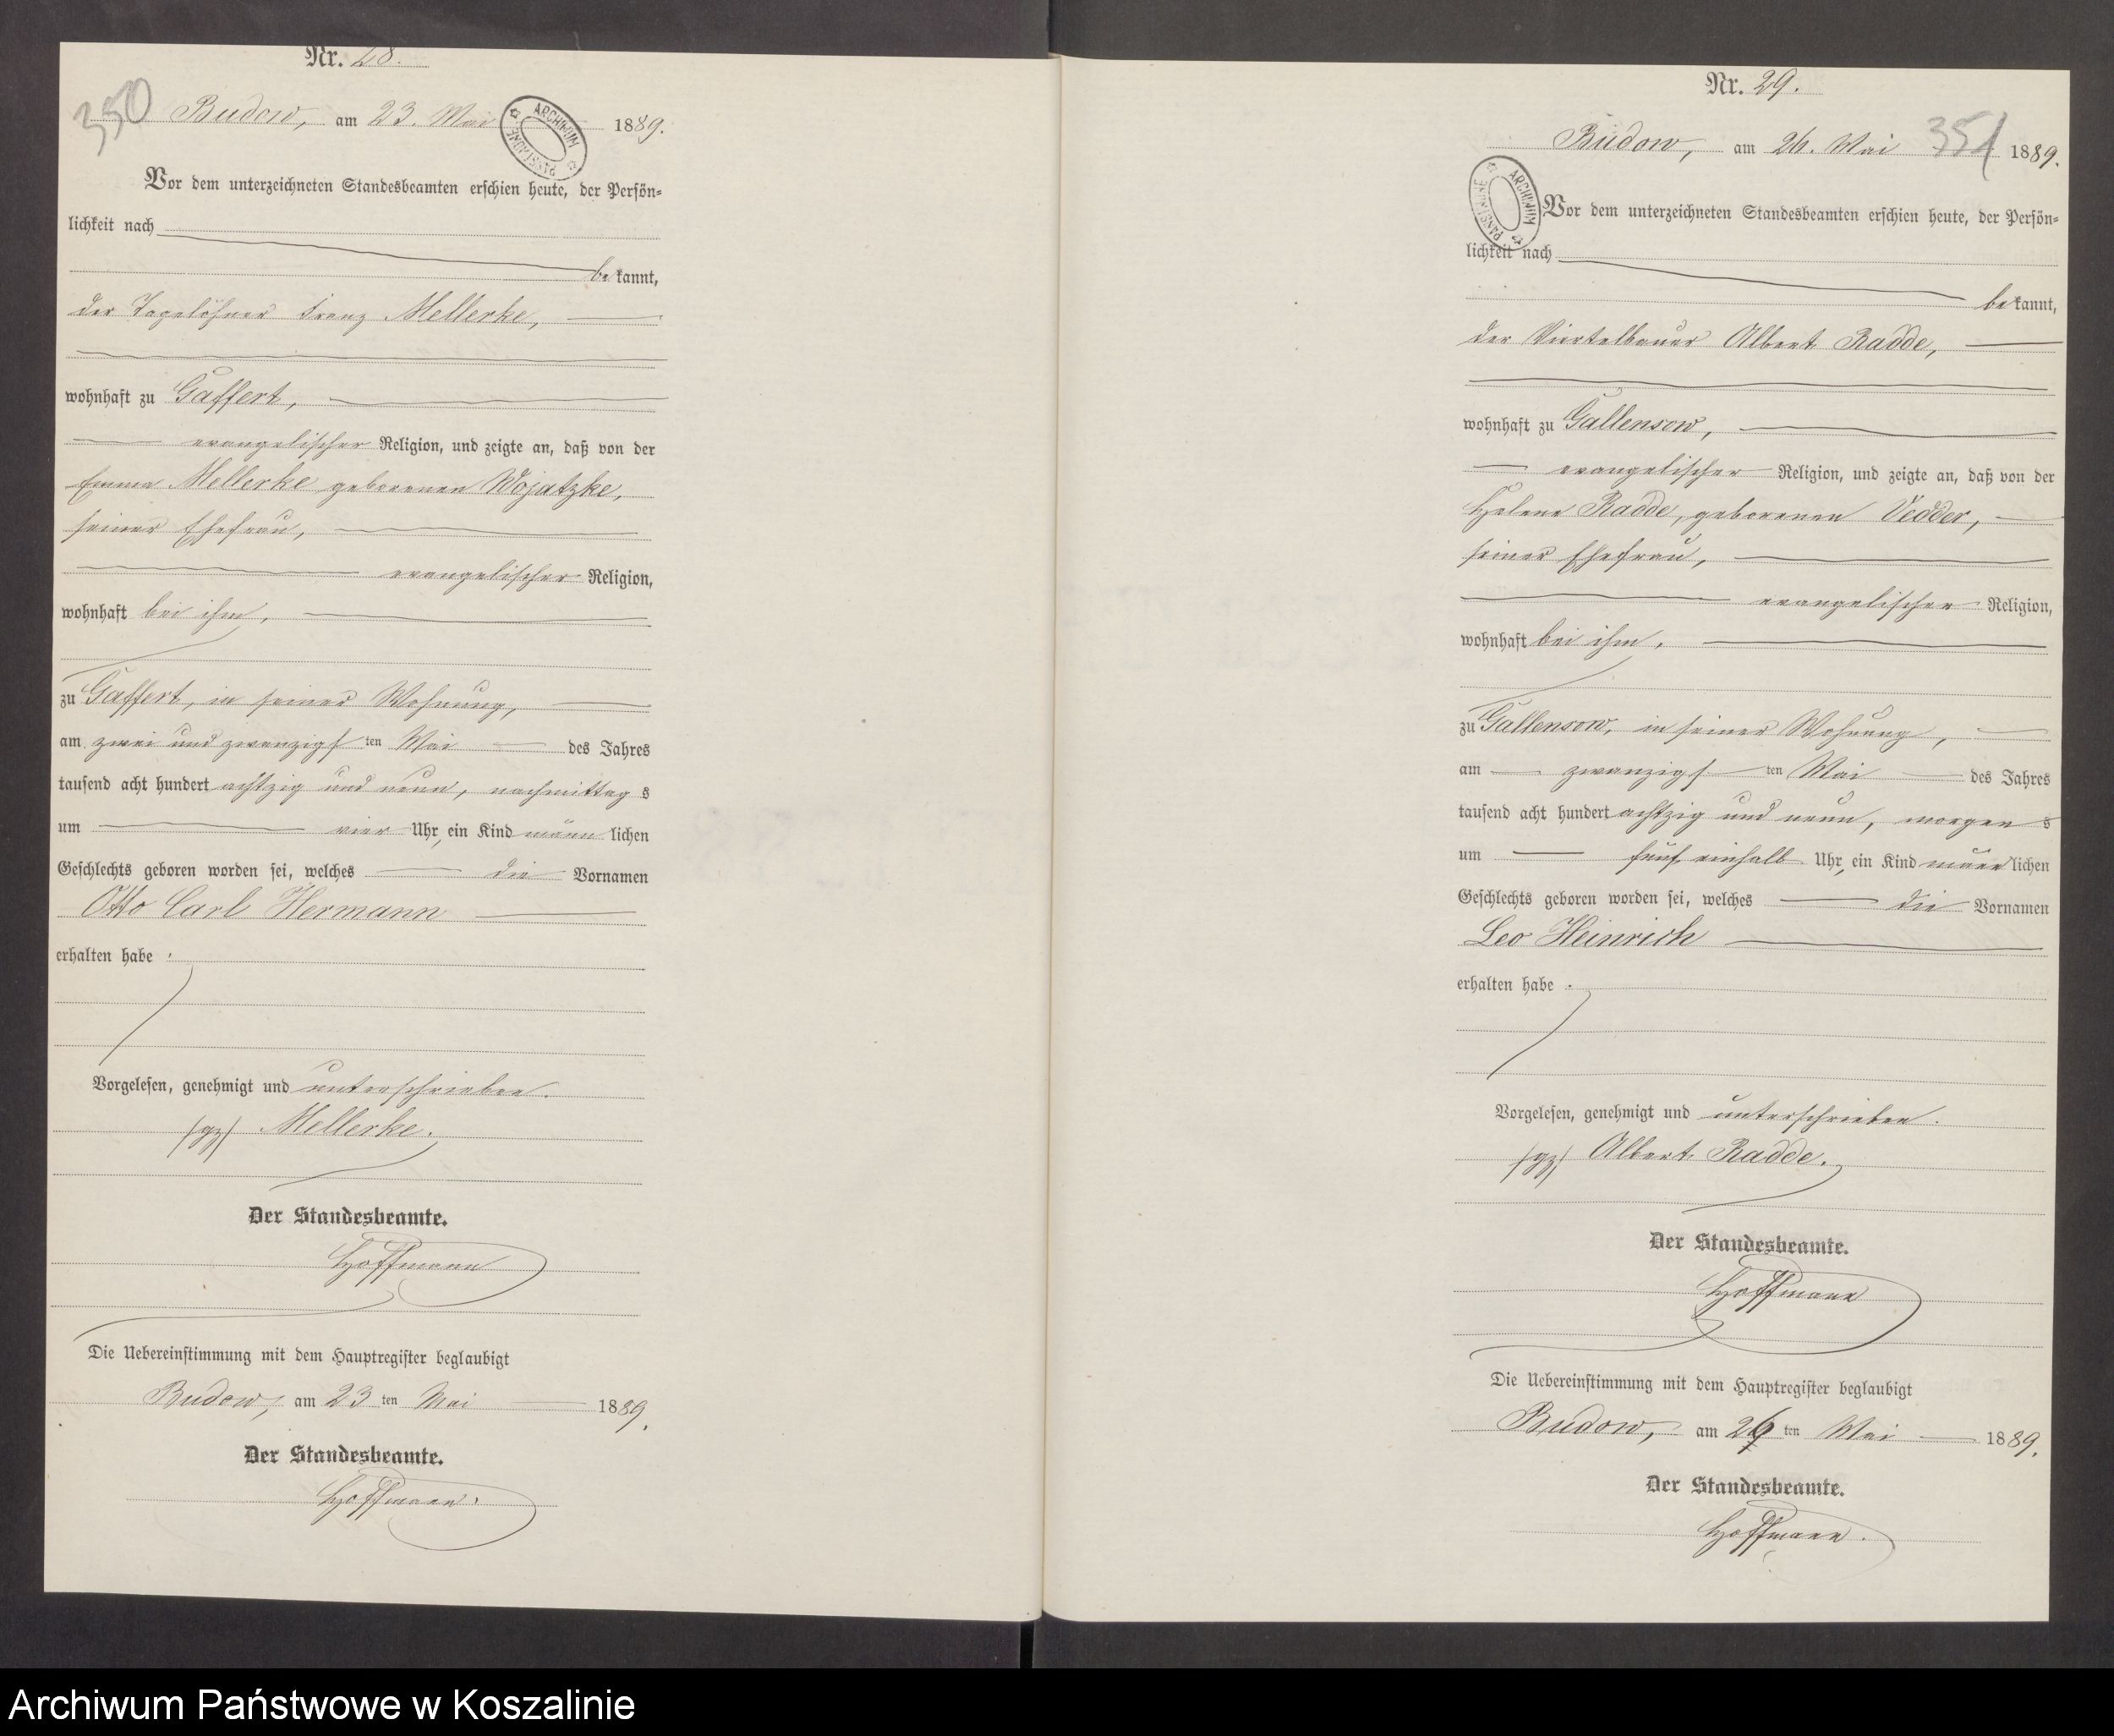 Nr. 28.
350
Budow, am 23. Mai 1889.
ARCHIWUM PAŃSTWOWE
Vor dem unterzeichneten Standesbeamten erschien heute, der Persön-
lichkeit nach
be kannt,
der Tagelöhner Franz Mellerke,
wohnhaft zu Gaffert,
evangelischer Religion, und zeigte an, daß von der
Emma Mellerke geborenen Wojatzke,
seiner Ehefrau,
evangelischer Religion,
wohnhaft bei ihm,
zu Gaffert, in seiner Wohnung,
am zwei und zwanzigs ten Mai des Jahres
tausend acht hundert achtzig und neun, nachmittag s
um vier Uhr, ein Kind männ lichen
Geschlechts geboren worden sei, welches die Vornamen
Otto Carl Hermann
erhalten habe.
Vorgelesen, genehmigt und unterschrieben.
/gz/ Mellerke.
Der Standesbeamte.
Hoffmann
Die Uebereinstimmung mit dem Hauptregister beglaubigt
Budow, am 23 ten Mai 1889.
Der Standesbeamte.
Hoffmann.
Nr. 29.
Budow, am 26. Mai 351 1889.
ARCHIWUM PAŃSTWOWE
Vor dem unterzeichneten Standesbeamten erschien heute, der Persön-
lichkeit nach
be kannt,
der Viertelbauer Albert Radde,
wohnhaft zu Gallensow,
evangelischer Religion, und zeigte an, daß von der
Helene Radde, geborenen Vedder,
seiner Ehefrau,
evangelischer Religion,
wohnhaft bei ihm,
zu Gallensow, in seiner Wohnung,
am zwanzigs ten Mai des Jahres
tausend acht hundert achtzig und neun, morgen s
um fünf einhalb Uhr, ein Kind männ lichen
Geschlechts geboren worden sei, welches die Vornamen
Leo Heinrich
erhalten habe.
Vorgelesen, genehmigt und unterschrieben.
/gz/ Albert Radde.
Der Standesbeamte.
Hoffmann
Die Uebereinstimmung mit dem Hauptregister beglaubigt
Budow, am 26 ten Mai 1889.
Der Standesbeamte.
Hoffmann.
Archiwum Państwowe w Koszalinie